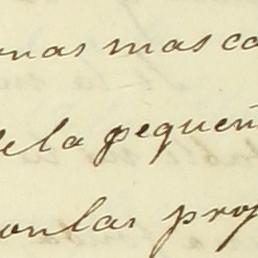 onas mas ca
de la pequeñ
con las prop